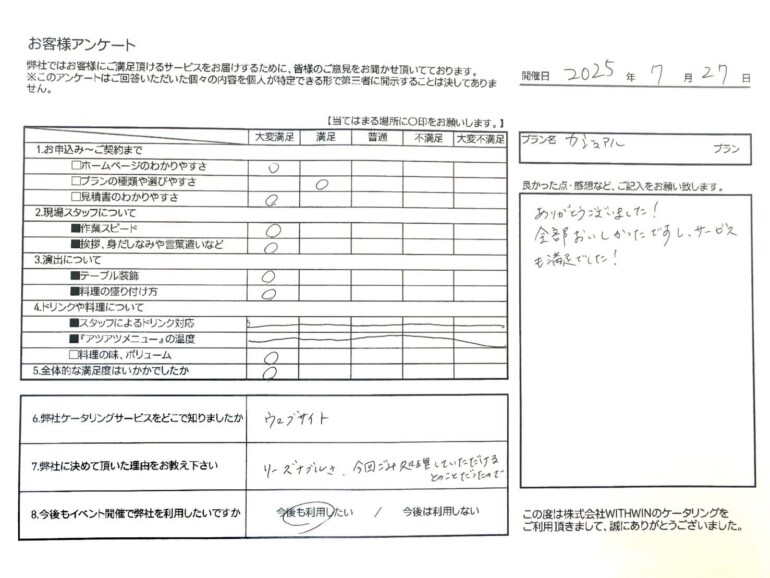 お客様アンケート
弊社ではお客様にご満足頂けるサービスをお届けするために、皆様のご意見をお聞かせ頂いております。
※このアンケートはご回答いただいた個々の内容を個人が特定できる形で第三者に開示することは決してありま
せん。
開催日 2025 年 7 月 27 日
【当てはまる場所に〇印をお願いします。】
大変満足 満足 普通 不満足 大変不満足
1.お申込み～ご契約まで
□ホームページのわかりやすさ ○
□プランの種類や選びやすさ ○
□見積書のわかりやすさ ○
2.現場スタッフについて
■作業スピード ○
■挨拶、身だしなみや言葉遣いなど ○
3.演出について
■テーブル装飾 ○
■料理の盛り付け方 ○
4.ドリンクや料理について
■スタッフによるドリンク対応
■『アツアツメニュー』の温度
□料理の味、ボリューム ○
5.全体的な満足度はいかかでしたか ○
プラン名 カジュアル プラン
良かった点・感想など、ご記入をお願い致します。
ありがとうございました!
全部おいしかったですし、サービス
も満足でした!
6.弊社ケータリングサービスをどこで知りましたか ウェブサイト
7.弊社に決めて頂いた理由をお教え下さい リーズナブルさ、今回ごみ処理していただける
とのことだったので
8.今後もイベント開催で弊社を利用したいですか 今後も利用したい / 今後は利用しない
この度は株式会社WITHWINのケータリングを
ご利用頂きまして、誠にありがとうございました。